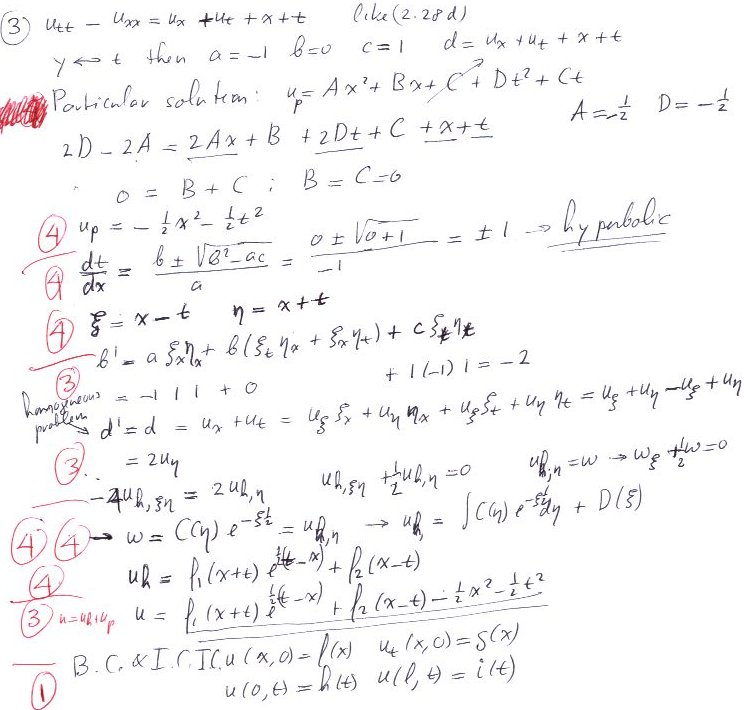 ③ u_tt − u_xx = u_x + u_t + x + t   like (2.28d)
y ↔ t then a = −1 b=0 c = 1 d = u_x + u_t + x + t
Particular solution: u_p = Ax² + Bx + C + Dt² + Ct
A = −1/2 D = −1/2
2D − 2A = 2Ax + B + 2Dt + C + x + t
0 = B + C ; B = C = 0
④ u_p = −1/2 x² − 1/2 t²
④ dt/dx = (b ± √(b² − ac))/a = (0 ± √(0+1))/−1 = ± 1 → hyperbolic
④ ξ = x − t   η = x + t
③ b' = a ξ_x η_x + b(ξ_t η_x + ξ_x η_t) + c ξ_t η_t
= −1 1 1 + 0 + 1 (−1) 1 = −2
homogeneous problem → d' = d = u_x + u_t = u_ξ ξ_x + u_η η_x + u_ξ ξ_t + u_η η_t = u_ξ + u_η − u_ξ + u_η
③ = 2u_η
−4u_h,ξη = 2u_h,η   u_h,ξη + 1/2 u_h,η = 0   u_h,η = w → w_ξ + 1/2 w = 0
④ ④ → w = C(η) e^(−ξ 1/2) = u_h,η → u_h = ∫ C(η) e^(−ξ 1/2) dη + D(ξ)
④ u_h = f₁(x+t) e^(1/2(t−x)) + f₂(x−t)
③ u = u_h + u_p   u = f₁(x+t) e^(1/2(t−x)) + f₂(x−t) − 1/2 x² − 1/2 t²
① B.C. & I.C. IC. u(x,0) = f(x)   u_t(x,0) = g(x)
u(0,t) = h(t)   u(l,t) = i(t)